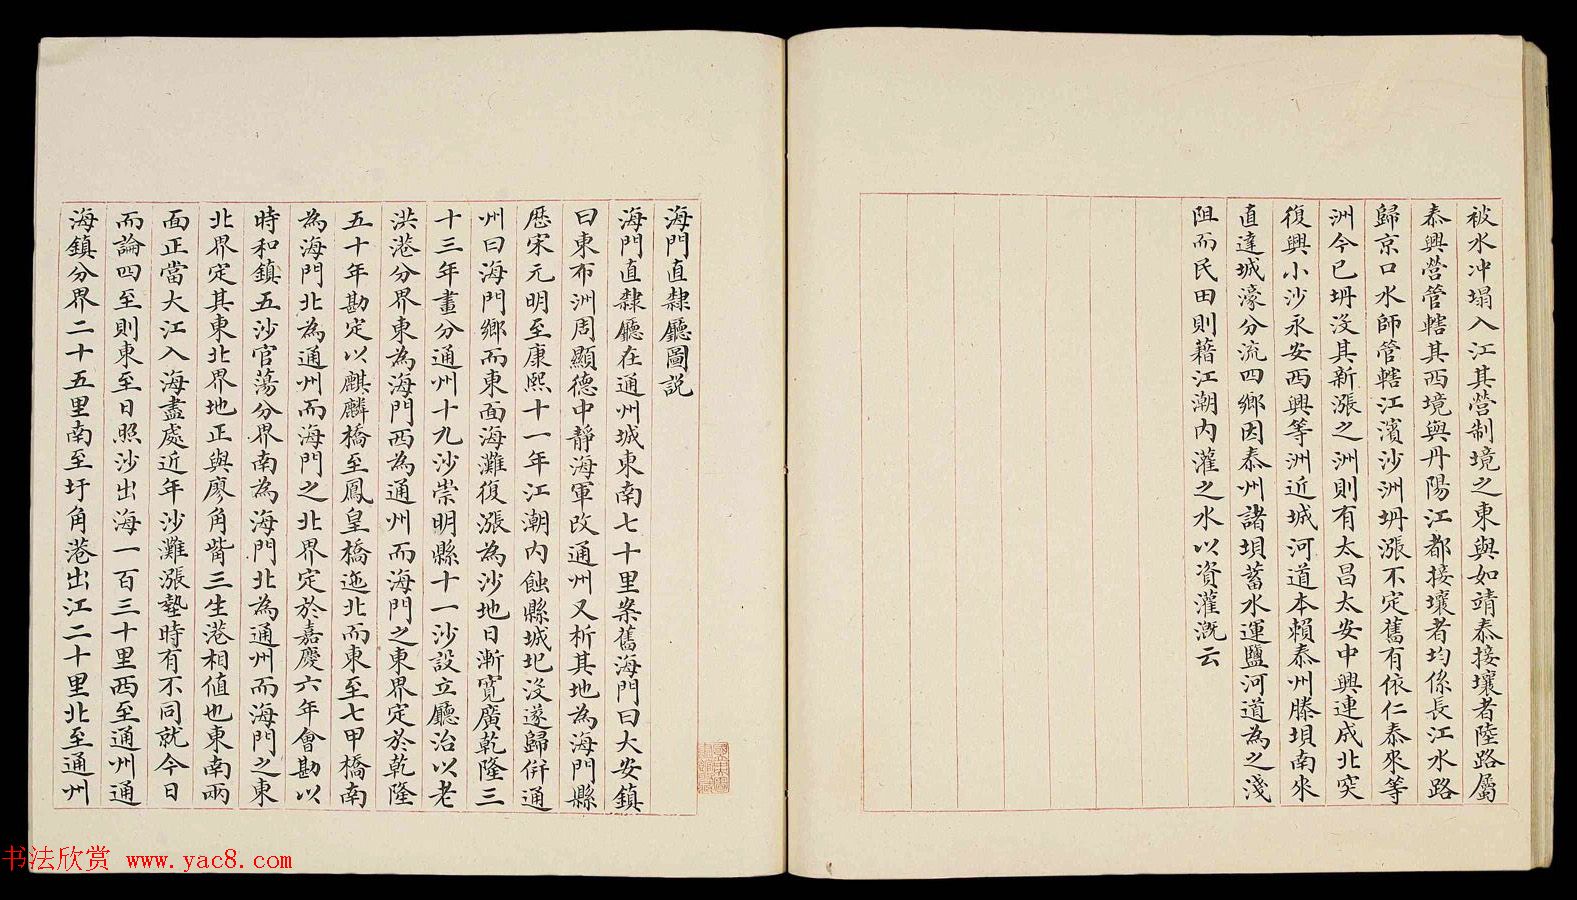 被水冲塌入江其營制境之東與如靖泰接壤者陸路屬
泰興營管轄其西境與丹陽江都接壤者均係長江水路
歸京口水師管轄江濱沙洲坍漲不定舊有依仁泰來等
洲今已坍沒其新漲之洲則有太昌太安中興連成北突
復興小沙永安西興等洲近城河道本賴泰州滕壩南來
直達城濠分流四鄉因泰州諸壩蓄水運鹽河道為之淺
阻而民田則藉江潮內灌之水以資灌溉云
海門直隸廳圖説
海門直隸廳在通州城東南七十里案舊海門曰大安鎮
曰東布洲周顯德中靜海軍改通州又析其地為海門縣
歷宋元明至康熙十一年江潮內蝕縣城圮沒遂歸併通
州曰海門鄉而東面海灘復漲為沙地日漸寬廣乾隆三
十三年畫分通州十九沙崇明縣十一沙設立廳治以老
洪港分界東為海門西為通州而海門之東界定於乾隆
五十年勘定以麒麟橋至鳳皇橋迤北而東至七甲橋南
為海門北為通州而海門之北界定於嘉慶六年會勘以
時和鎮五沙官蕩分界南為海門北為通州而海門之東
北界定其東北界地正與廖角觜三生港相值也東南兩
面正當大江入海盡處近年沙灘漲墊時有不同就今日
而論四至則東至日照沙出海一百三十里西至通州通
海鎮分界二十五里南至圩角港出江二十里北至通州
书法欣赏 www.yac8.com